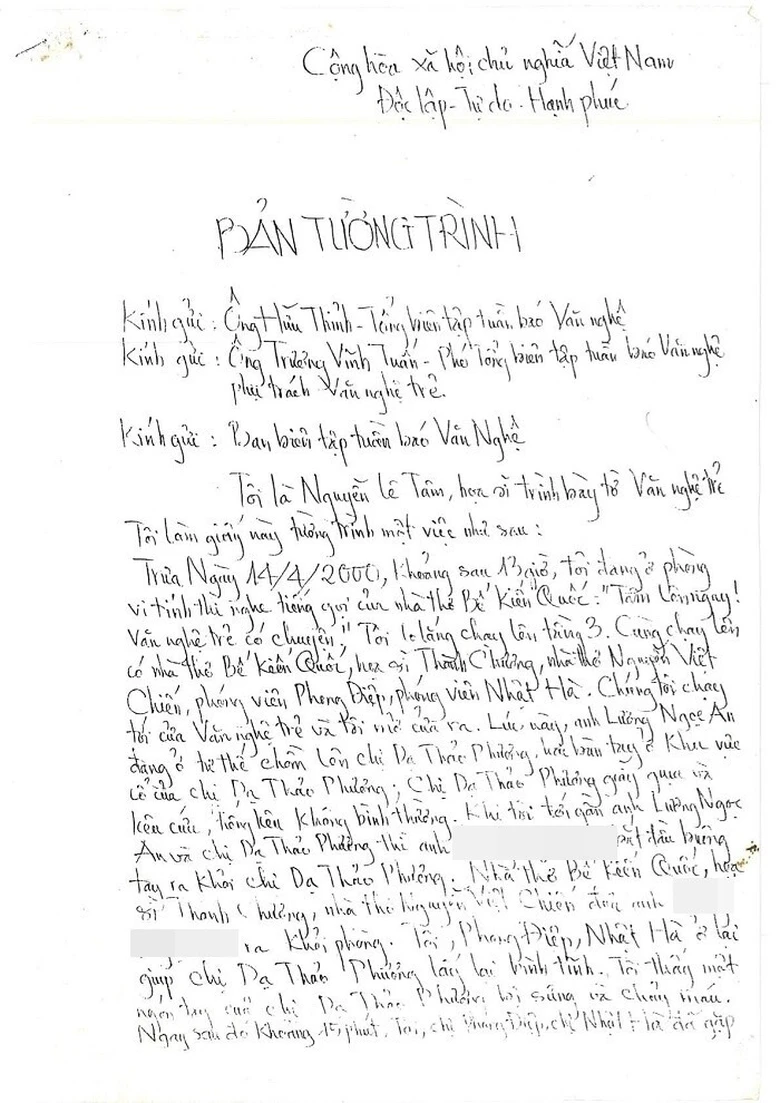 Cộng hòa xã hội chủ nghĩa Việt Nam
Độc lập - Tự do - Hạnh phúc
BẢN TƯỜNG TRÌNH
Kính gửi : Ông Hữu Thỉnh - Tổng biên tập tuần báo Văn nghệ
Kính gửi : Ông Trương Vĩnh Tuấn - Phó Tổng biên tập tuần báo Văn nghệ
phụ trách Văn nghệ trẻ.
Kính gửi : Ban biên tập tuần báo Văn Nghệ
Tôi là Nguyễn Lê Tâm, họa sĩ trình bày tờ Văn nghệ trẻ
Tôi làm giấy này tường trình một việc như sau :
Trưa Ngày 14/4/2000, Khoảng sau 13 giờ, tôi đang ở phòng
vi tính thì nghe tiếng gọi của nhà thơ Bế Kiến Quốc : "Tâm lên ngay!
Văn nghệ trẻ có chuyện!" Tôi lo lắng chạy lên tầng 3. Cùng chạy lên
có nhà thơ Bế Kiến Quốc, họa sĩ Thành Chương, nhà thơ Nguyễn Việt
Chiến, phóng viên Phong Điệp, phóng viên Nhật Hà. Chúng tôi chạy
tới cửa Văn nghệ trẻ và tôi mở cửa ra. Lúc này, anh Lương Ngọc An
đang ở tư thế chồm lên chị Dạ Thảo Phương, hai bàn tay ở khu vực
cổ của chị Dạ Thảo Phương; Chị Dạ Thảo Phương giãy giụa và
kêu cứu, tiếng kêu không bình thường. Khi tôi tới gần anh Lương Ngọc
An và chị Dạ Thảo Phương thì anh bắt đầu buông
tay ra khỏi chị Dạ Thảo Phương. Nhà thơ Bế Kiến Quốc, họa
sĩ Thành Chương, nhà thơ Nguyễn Việt Chiến đưa anh
ra khỏi phòng. Tôi, Phong Điệp, Nhật Hà ở lại
giúp chị Dạ Thảo Phương lấy lại bình tĩnh. Tôi thấy một
ngón tay của chị Dạ Thảo Phương bị sưng và chảy máu.
Ngay sau đó khoảng 15 phút, Tôi, chị Phong Điệp, chị Nhật Hà đã gặp